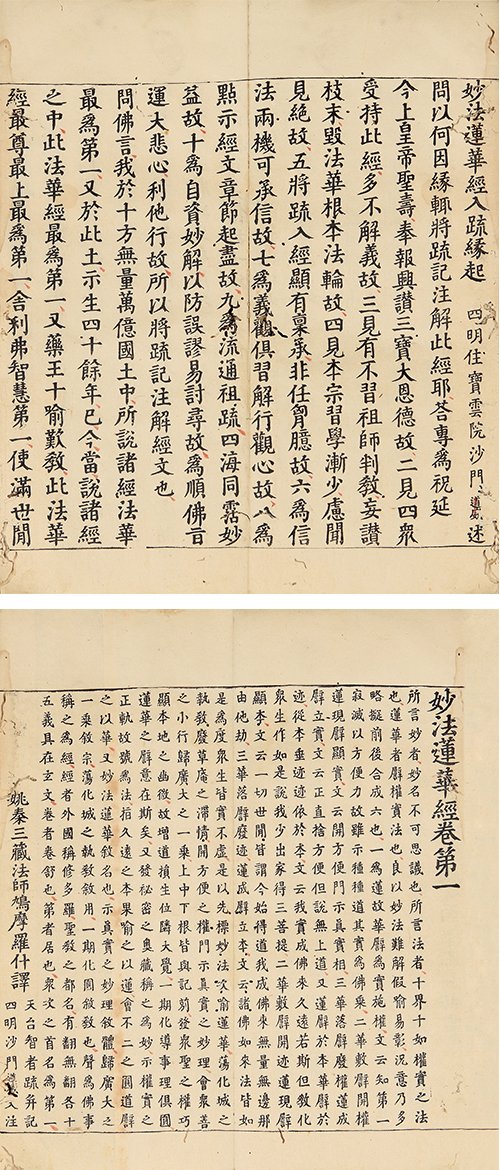 妙法蓮華經入疏緣起　四明住寶雲院沙門　道威　述
問以何因緣輙將疏記注解此經耶荅專爲祝延
今上皇帝聖壽奉報興讚三寶大恩德故二見四衆
受持此經多不解義故三見有不習祖師判教妄讚
枝末毀法華根本法輪故四見本宗習學漸少慮聞
見絶故五將疏入經顯有稟承非任胷臆故六爲信
法兩機可承信故七爲義觀俱習解行觀心故八爲
點示經文章節起盡故九爲流通祖疏四海同霑妙
益故十爲自資妙解以防誤謬易討尋故爲順佛言
運大悲心利他行故所以將疏記注解經文也
問佛言我於十方無量萬億國土中所說諸經法華
最爲第一又於此土示生四十餘年已今當說諸經
之中此法華經最爲第一又藥王十喻歎教此法華
經最尊最上最爲第一舍利弗智慧第一使滿世間
妙法蓮華經卷第一
所言妙者妙名不可思議也所言法者十界十如權實之法
也蓮華者譬權實法也良以妙法難解假喻易彰況意乃多
略擬前後合成六也一爲蓮故華譬爲實施權文云知第一
寂滅以方便力故雖示種種道其實爲佛乘二華敷譬開權
蓮現譬顯實文云開方便門示真實相三華落譬廢權蓮成
譬立實文云正直捨方便但說無上道又蓮譬於本華譬於
迹從本垂迹迹依於本文云我實成佛來久遠若斯但教化
衆生作如是說我少出家得三菩提二華敷譬開迹蓮現譬
顯本文云一切世間皆謂今始得道我成佛來無量無邊那
由他劫三華落譬廢迹蓮成譬立本文云諸佛如來法皆如
是爲度衆生皆實不虛是以先標妙法次喻蓮華蕩化城之
執教廢草庵之滯情開方便之權門示真實之妙理會衆善
之小行歸廣大之一乘上中下根皆與記莂發衆聖之權巧
顯本地之幽微故增道損生位隣大覺一期化導事理俱圓
蓮華之譬意在斯矣又發秘密之奧藏稱之爲妙示權實之
正軌故號爲法指久遠之本果喻之以蓮會不二之圓道譬
之以華又妙法蓮華敘名也示真實之妙理敘體歸廣大之
一乘敘宗蕩化城之執教敘用一期化圓敘教也聲爲佛事
稱之爲經經者外國稱修多羅聖教之都名有翻無翻各十
五義具在玄文卷者卷舒也第者居也衆次之首名爲第一
姚秦三藏法師鳩摩羅什譯
天台智者疏幷記
四明沙門　道威　入注